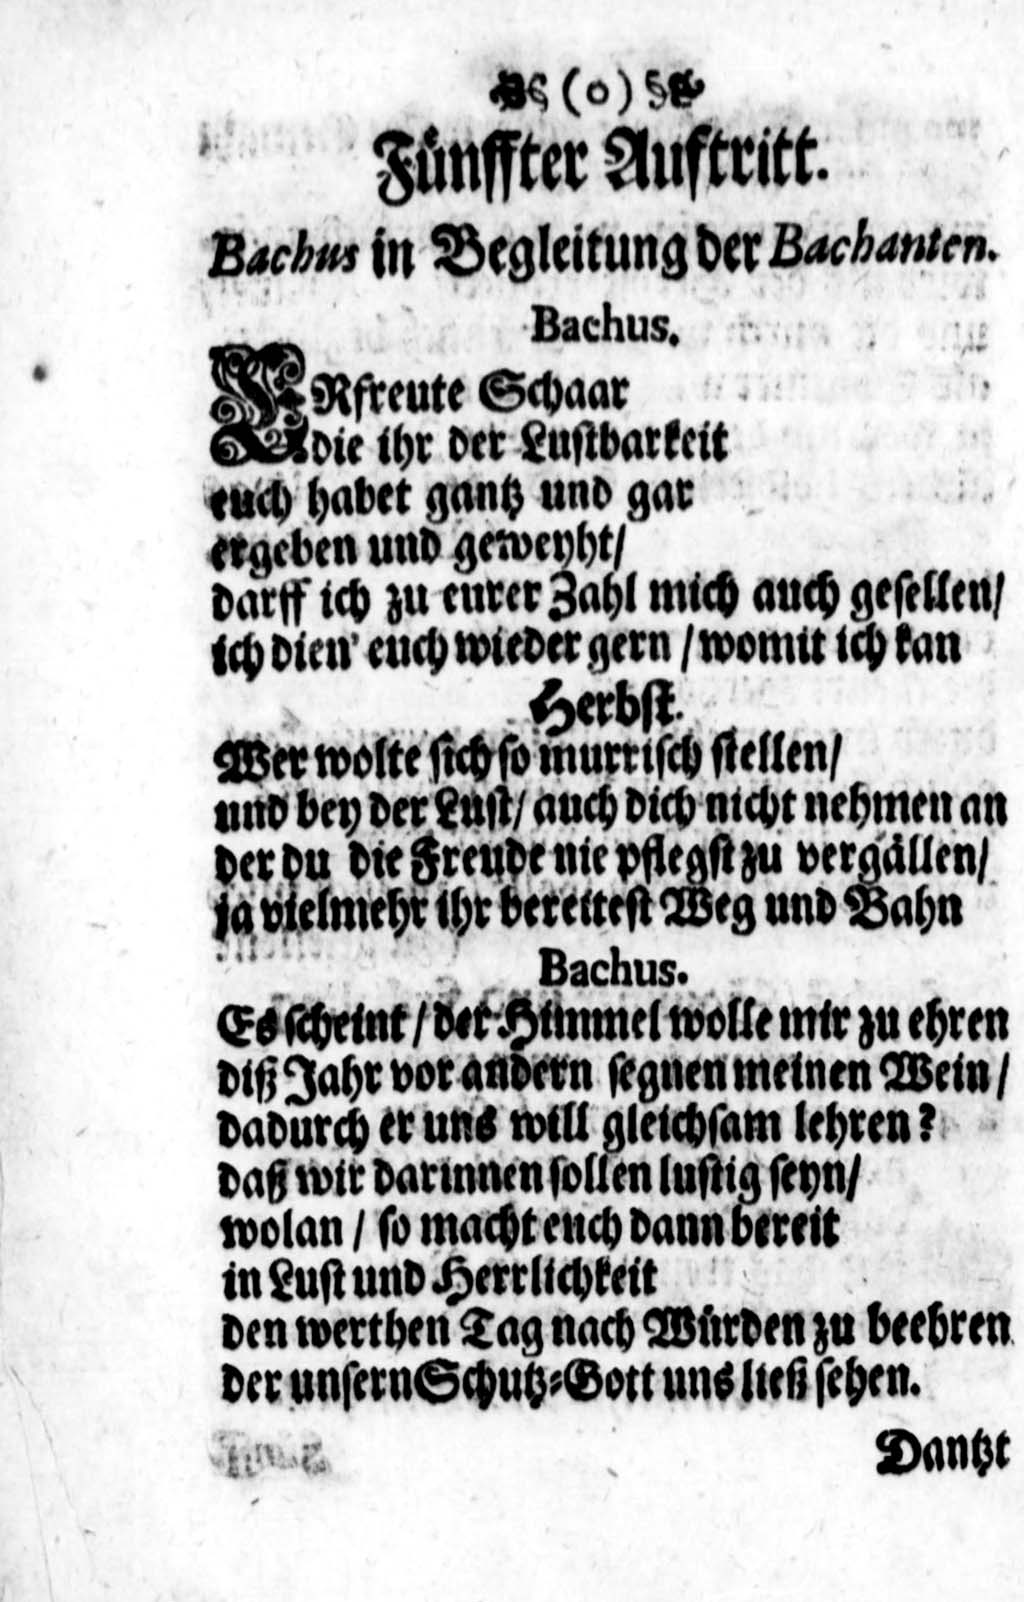 (o)
Fünffter Aufftritt.
Bachus in Begleitung der Bachanten.
Bachus.
ERfreute Schaar
die ihr der Lustbarkeit
euch habet gantz und gar
ergeben und geweyht/
darff ich zu eurer Zahl mich auch gesellen/
ich dien' euch wieder gern / womit ich kan
Herbst.
Wer wolte sich so murrisch stellen/
und bey der Lust/ auch dich nicht nehmen an
der du die Freude nie pflegst zu vergällen/
ja vielmehr ihr bereitest Weg und Bahn
Bachus.
Es scheint / der Himmel wolle mir zu ehren
diß Jahr vor andern segnen meinen Wein /
dadurch er uns will gleichsam lehren?
daß wir darinnen sollen lustig seyn/
wolan / so macht euch dann bereit
in Lust und Herrlichkeit
den werthen Tag nach Würden zu beehren
der unsern Schutz-Gott uns ließ sehen.
Dantzt